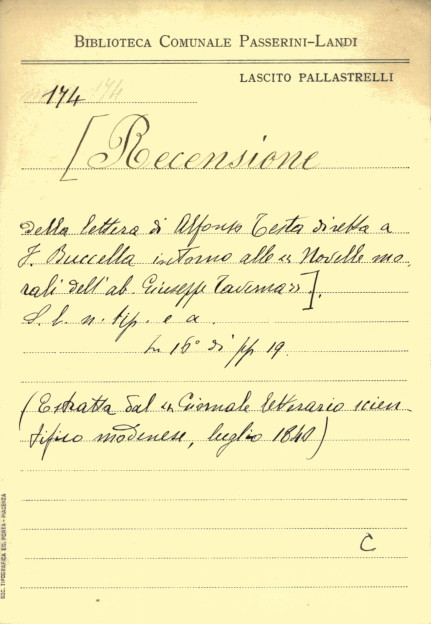 BIBLIOTECA COMUNALE PASSERINI-LANDI
LASCITO PALLASTRELLI
174 174
[Recensione
della lettera di Alfonso Testa diretta a
F. Buccella intorno alle « Novelle mo-
rali dell'ab. Giuseppe Taverna »].
S. l. n. tip. e a.
In 16° di pp 19.
(Estratta dal « Giornale letterario scien-
tifico modenese, luglio 1840)
C
SOC. TIPOGRAFICA ED. PORTA - PIACENZA